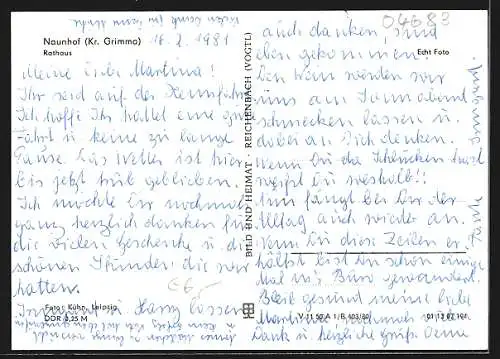 Naunhof (Kr. Grimma)
Rathaus
16.2.1981
Meine liebe Martina!
Ihr seid auf der Heimfahrt
Ich hoffe Ihr hattet eine gute
Fahrt u keine zu lange
Pause. Das Wetter ist hier
bis jetzt trüb geblieben.
Ich möchte Dir nochmal
ganz herzlich danken für
die vielen Geschenke u. die
schönen Stunden, die wir
hatten.
Foto: Kühn, Leipzig
DDR 0,25 M
Harry lassen
BILD UND HEIMAT · REICHENBACH (VOGTL)
04683
Echt Foto
auch danken, sind
eben gekommen.
Den Wein werden wir
uns am Sonnabend
schmecken lassen u.
dabei an Dich denken.
Wenn Du die
weißt Du weshalb!!
Nun fängt bei Dir der
Alltag auch wieder an.
Wenn Du diese Zeilen er-
hältst bist Du schon einige
mal ins Büro gewandert.
Bleib gesund meine liebe
Martina nochmals
Dank u. herzliche Grüße Deine
V 11 50 A 1/B 603/80
01 13 07 191